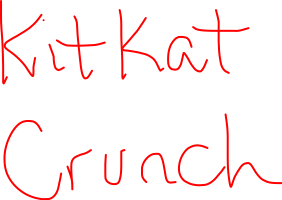 KitKat
Crunch